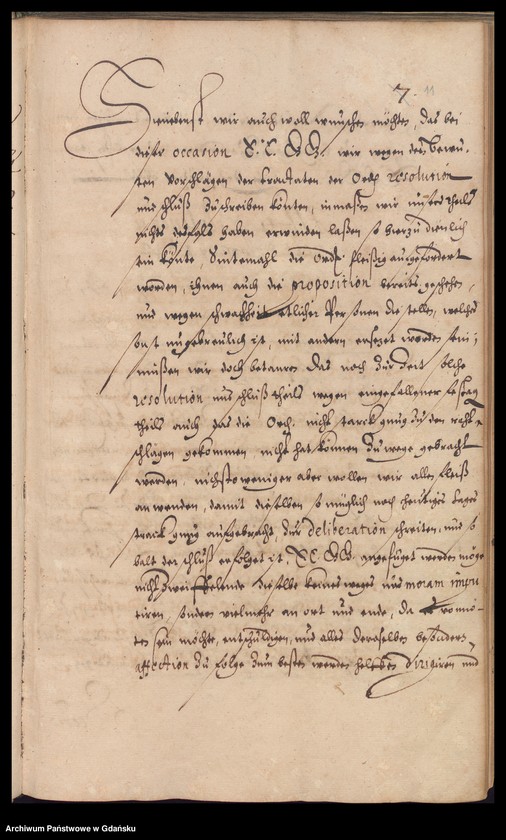 7. 11
wir auch woll wünschen möchten, das bei
dieser occasion E. E. wir wegen des
ten Vorschlägen der tractaten der Ord: resolution
und schluß zuschreiben könten, inmaßen wir unsers theils
nichts desfals haben erwinden laßen so hierzu dienlich
sein könte Sintemahl die Ord: fleißig aufgefordert
worden, ihnen auch die proposition bereits geschehen,
und wegen schwachheit etlicher Personen die stellen, welches
sonst ungebreulich ist, mit andern ersetzet worden sein;
müßen wir doch betauren das noch zur zeit solche
resolution und schluß theils wegen eingefallener festag
theils auch das die Ord: nicht starck gnug zu den raht-
schlägen gekommen, nicht hat können zu wege gebracht
werden, nichstoweniger aber wollen wir allen fleiß
an wenden, damit dieselben so müglich noch heutiges tages
starck gnug aufgebracht, zur deliberation schreiten, und so
balt der schluß erfolget ist, E. E. zugefüget werden möge
nicht zweifelende dieselbe keines weges uns moram impu
tiren, sondern vielmehr an ort und ende, da
ten sein möchte, entschuldigen, und alles deroselben besondern
affection zu folge zum besten werden helffen dirigiren und
Archiwum Państwowe w Gdańsku